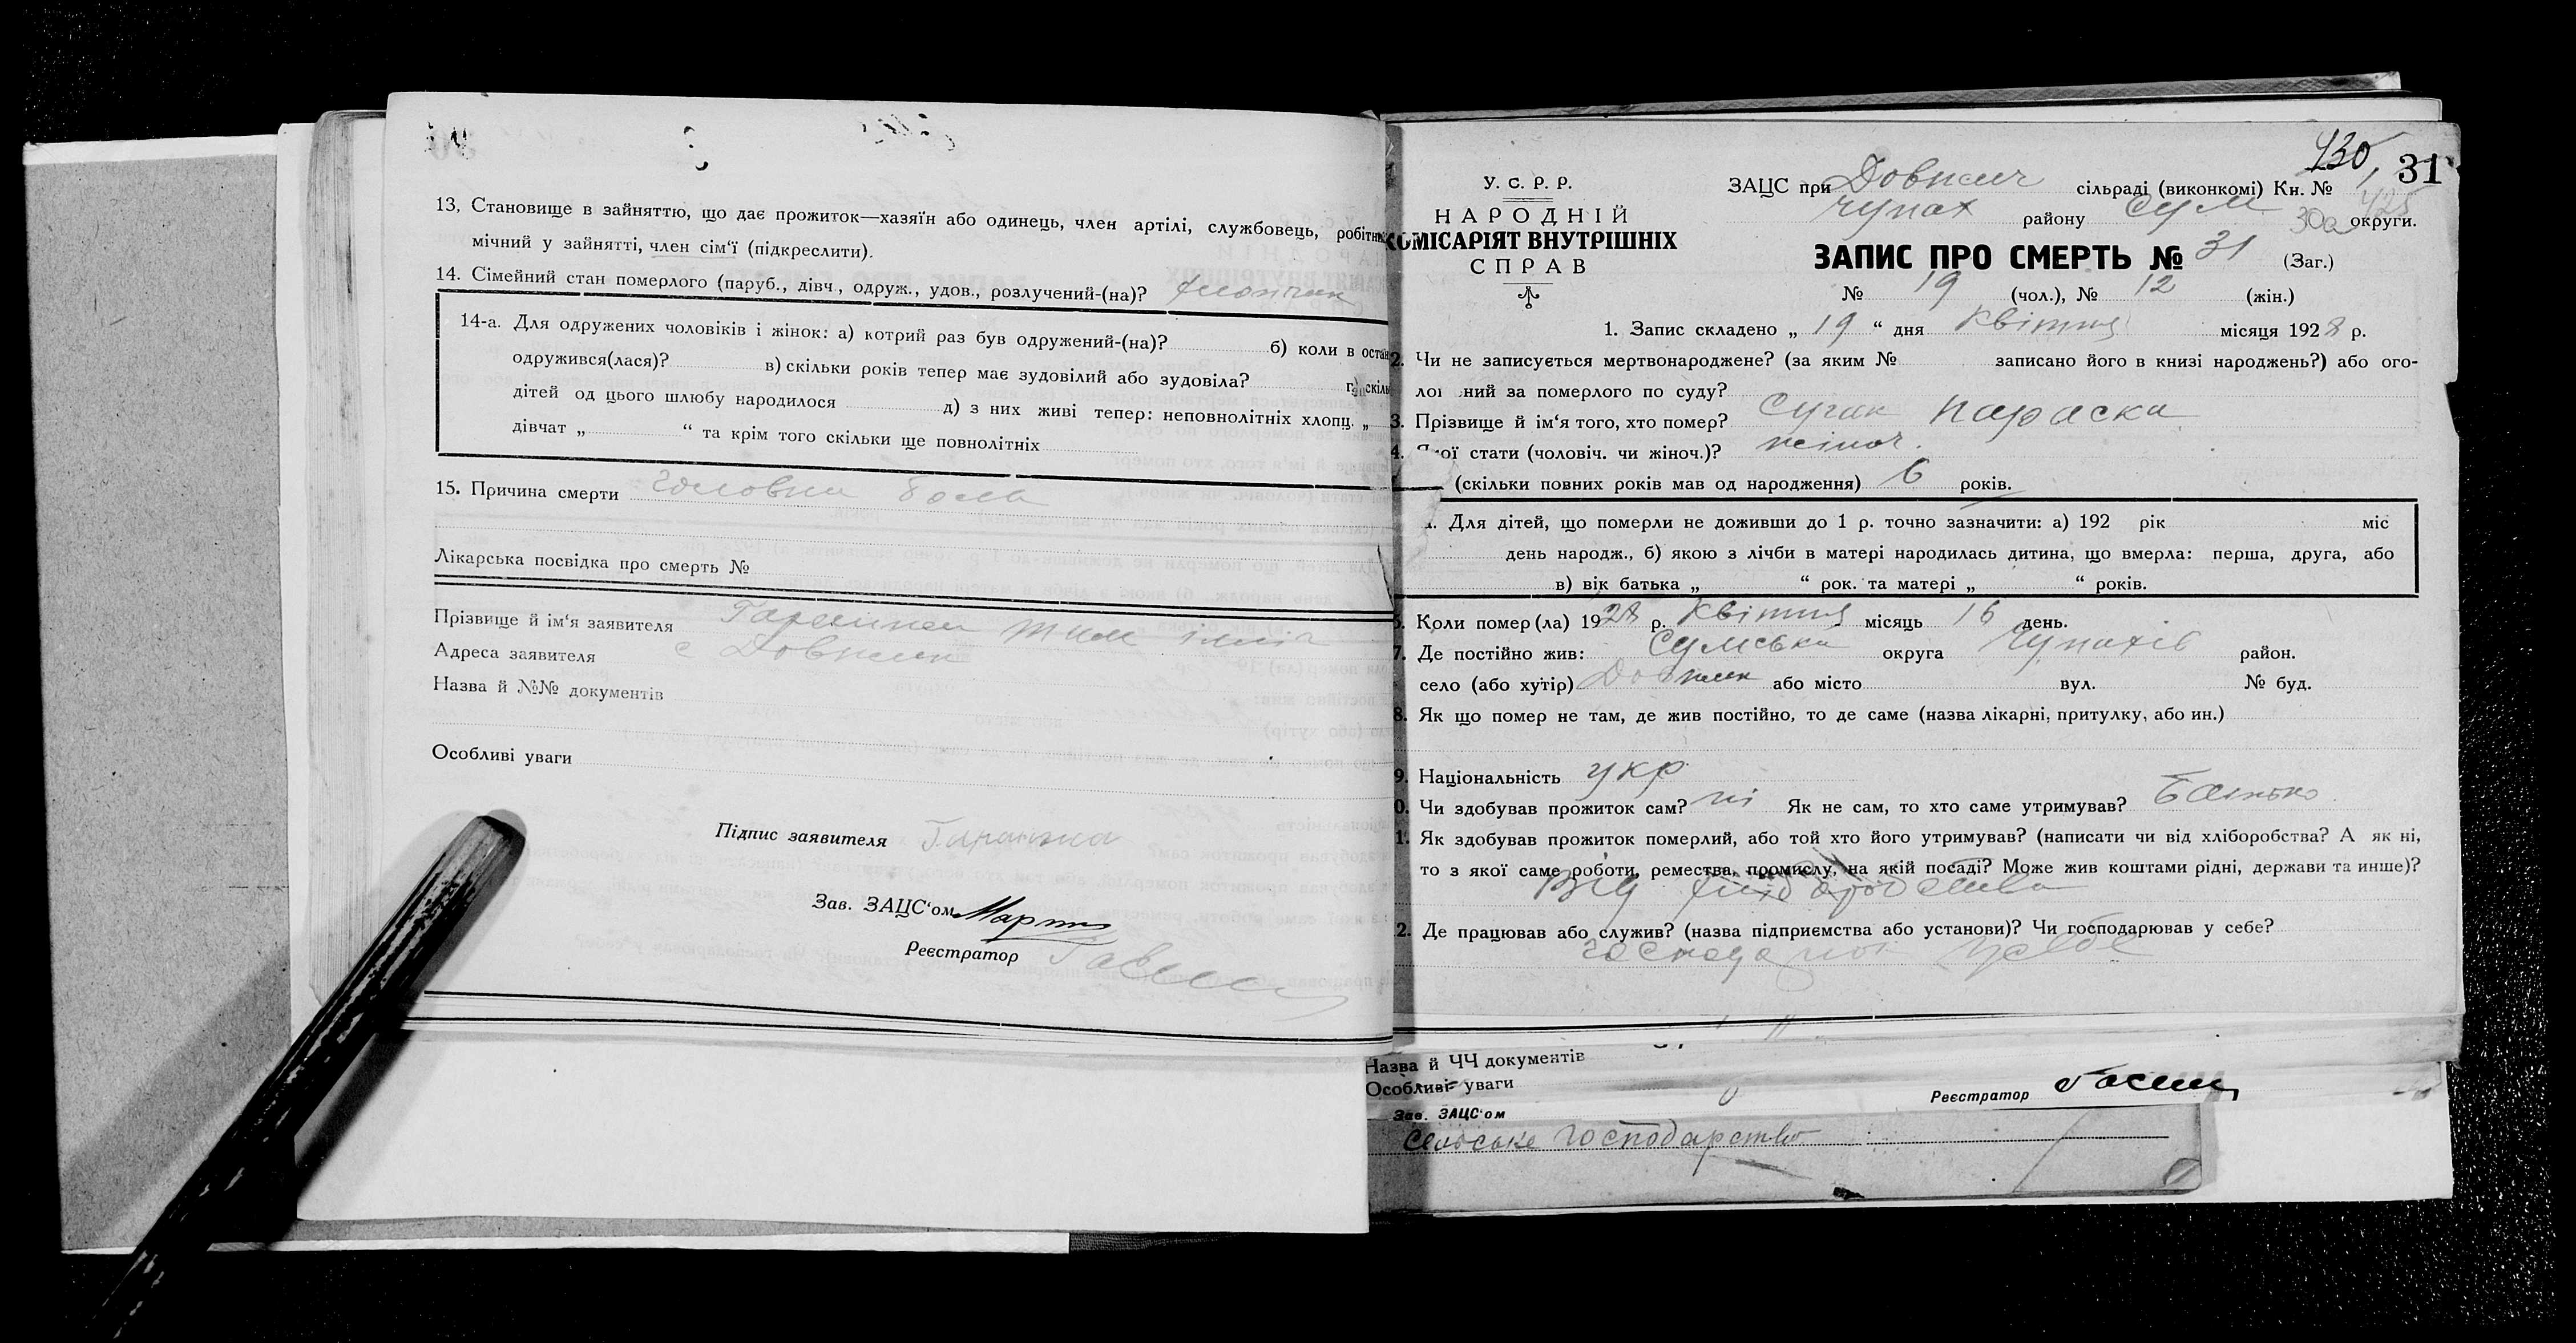 13. Становище в зайняттю, що дає прожиток—хазяїн або одинець, член артілі, службовець, робітн
мічний у зайнятті, член сім‘ї (підкреслити).
14. Сімейний стан померлого (паруб., дівч., одруж., удов., розлучений-(на)? хлопчик
14-а. Для одружених чоловіків і жінок: а) котрий раз був одружений-(на)? б) коли в остан
одружився(лася)? в) скільки років тепер має зудовілий або зудовіла? г) скіль
дітей од цього шлюбу народилося д) з них живі тепер: неповнолітніх хлопц. „
дівчат „ “ та крім того скільки ще повнолітніх
15. Причина смерти головна боль
Лікарська посвідка про смерть №
Прізвище й ім‘я заявителя
Адреса заявителя с Довжик
Назва й №№ документів
Особливі уваги
Підпис заявителя
Зав. ЗАЦС‘ом
Реєстратор
430
31
У. С. Р. Р.
НАРОДНІЙ
КОМІСАРІЯТ ВНУТРІШНІХ
СПРАВ
ЗАЦС при Довжич сільраді (виконкомі) Кн. № 1
чупах району Сум округи.
ЗАПИС ПРО СМЕРТЬ № 31 (Заг.)
№ 19 (чол.), № 12 (жін.)
1. Запис складено „ 19 “ дня Квітня місяця 1928 р.
2. Чи не записується мертвонароджене? (за яким № записано його в книзі народжень?) або ого-
ло ний за померлого по суду?
3. Прізвище й ім‘я того, хто помер? Сугак Параска
4. ої стати (чоловіч. чи жіноч.)? жіноч.
(скільки повних років мав од народження) 6 років.
Для дітей, що померли не доживши до 1 р. точно зазначити: а) 192 рік міс
день народж., б) якою з лічби в матері народилась дитина, що вмерла: перша, друга, або
в) вік батька „ “ рок. та матері „ “ років.
Коли помер(ла) 1928 р. Квітня місяць 16 день.
7. Де постійно жив: Сумська округа Чупахів район.
село (або хутір) Довжик або місто вул. № буд.
8. Як що помер не там, де жив постійно, то де саме (назва лікарні, притулку, або ин.)
9. Національність укр
0. Чи здобував прожиток сам? ні Як не сам, то хто саме утримував? Батько
1. Як здобував прожиток померлий, або той хто його утримував? (написати чи від хліборобства? А як ні,
то з якої саме роботи, ремества, промислу, на якій посаді? Може жив коштами рідні, держави та инше)?
Від хліборобства
2. Де працював або служив? (назва підприємства або установи)? Чи господарював у себе?
Назва й ЧЧ документів
Особливі уваги
Реєстратор
Зав. ЗАЦС‘ом
Сельське Господарство